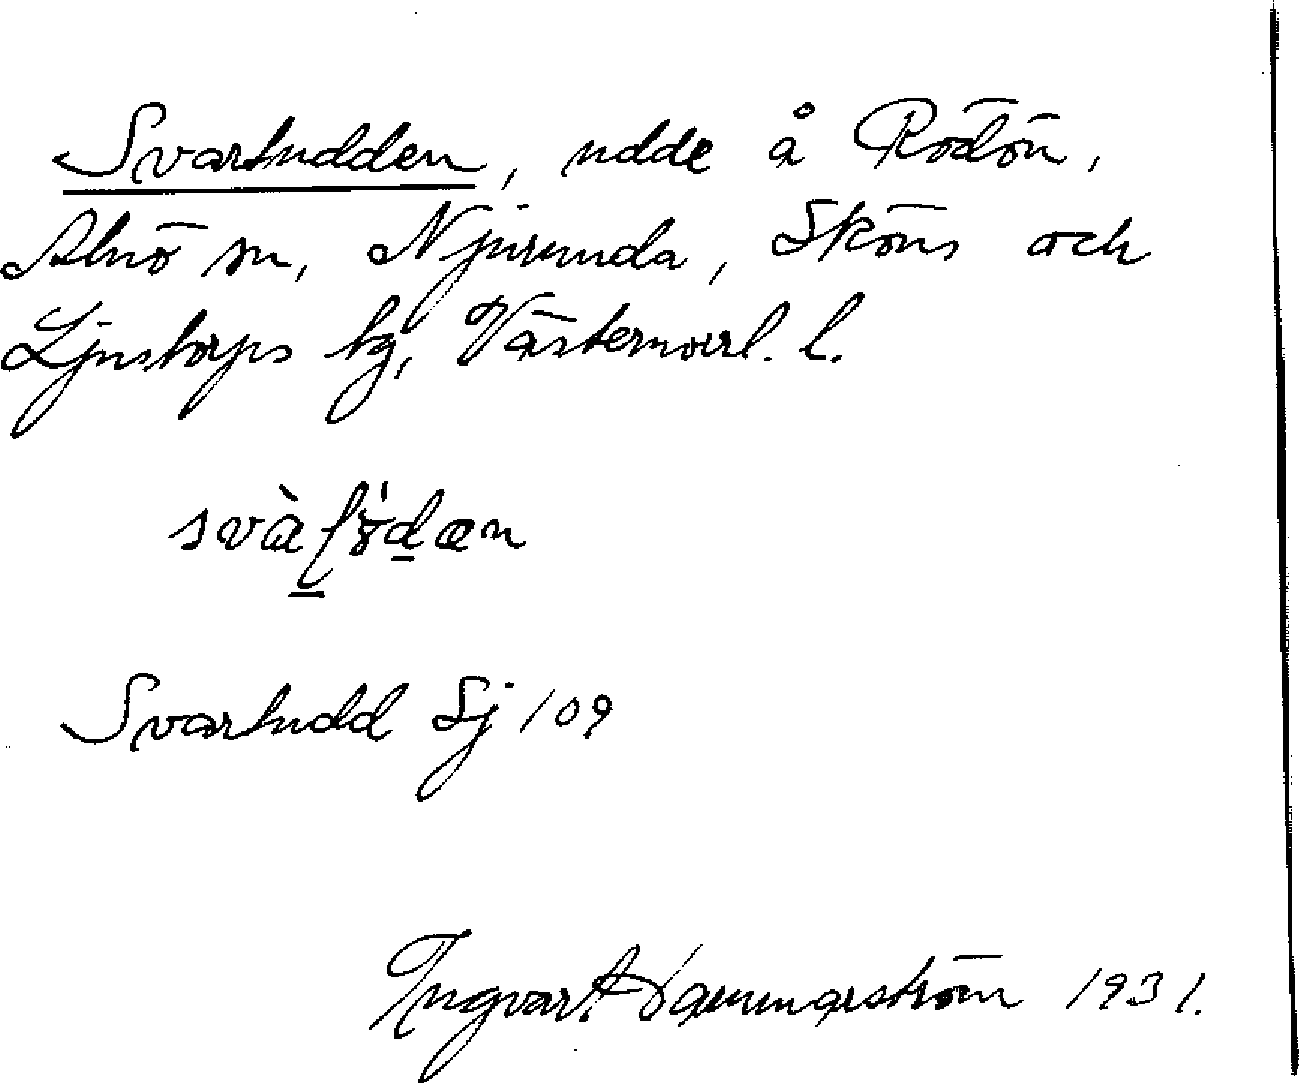 Svartudden, udde å Rödön,
Alnö sn, Njurunda, Sköns och
Ljustorps tg, Västernorrl. l.
Svartudd Sj 109
Ingvar Hammarström 1931.